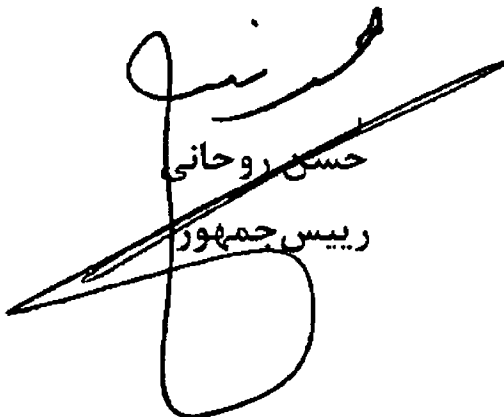 حسن روحانی
رییس‌جمهور